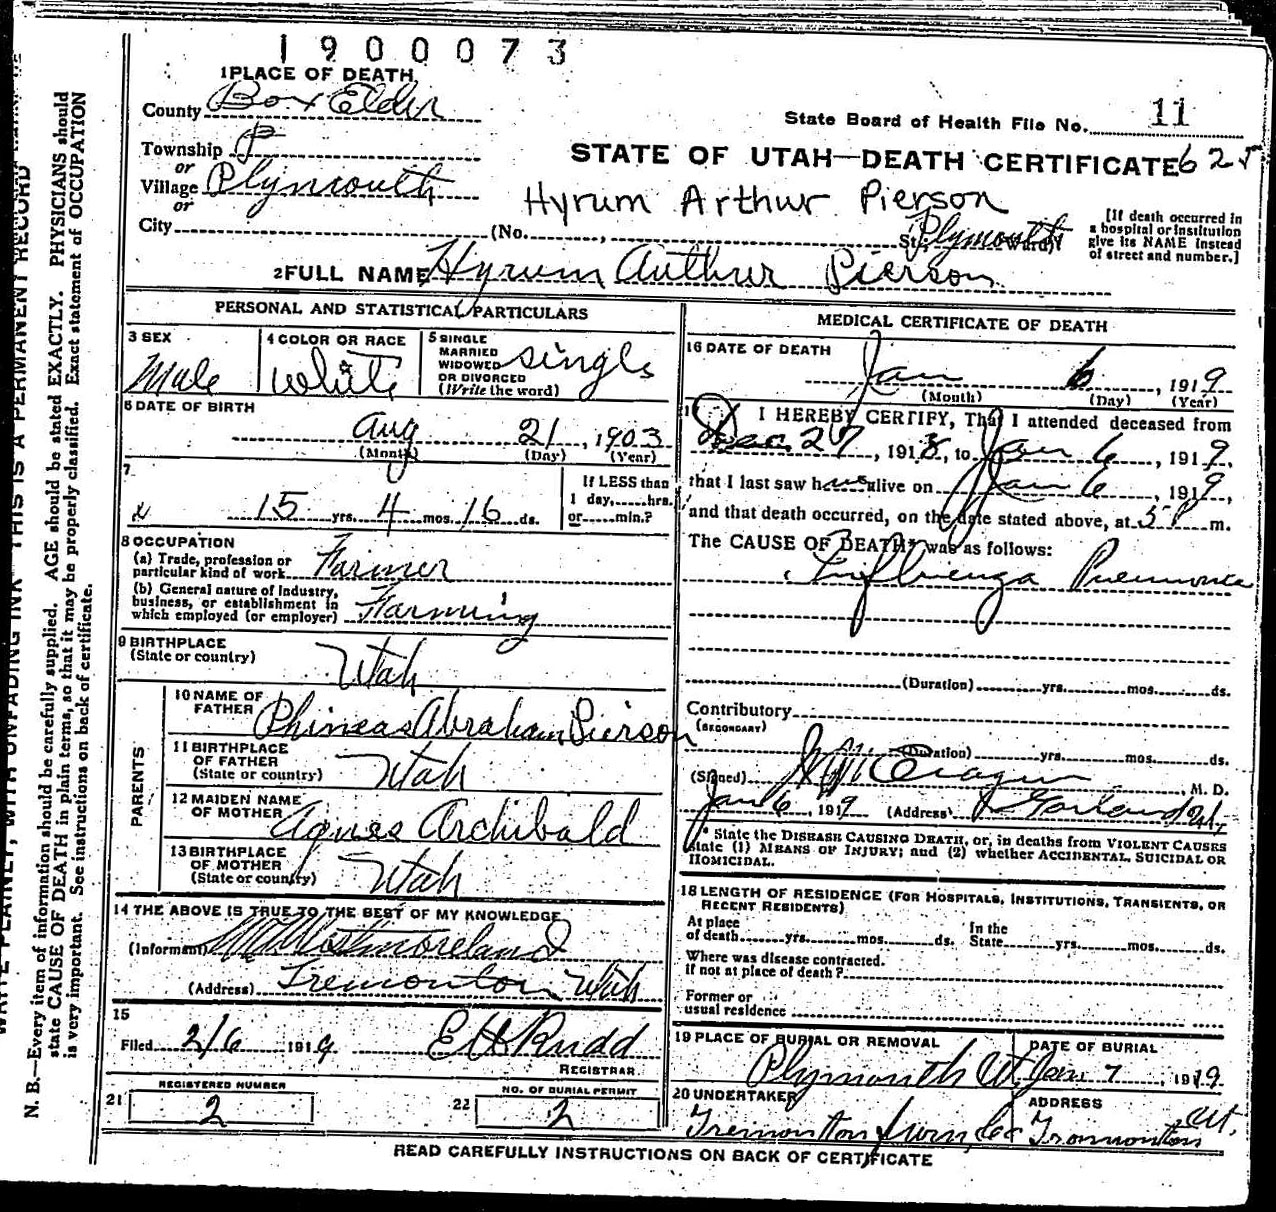 1900073
1 PLACE OF DEATH
County Box Elder
State Board of Health File No. 11
Township P
or
Village Plymouth
or
City (No. St., Plymouth Ward)
STATE OF UTAH—DEATH CERTIFICATE 625
Hyrum Arthur Pierson
[If death occurred in
a hospital or institution
give its NAME instead
of street and number.]
2 FULL NAME Hyrum Arthur Pierson
PERSONAL AND STATISTICAL PARTICULARS
3 SEX
Male
4 COLOR OR RACE
White
5 SINGLE
MARRIED
WIDOWED
OR DIVORCED
(Write the word)
Single
6 DATE OF BIRTH
Aug 21, 1903
(Month) (Day) (Year)
7
15 yrs. 4 mos. 16 ds.
If LESS than
1 day, hrs.
or min.?
8 OCCUPATION
(a) Trade, profession or
particular kind of work Farmer
(b) General nature of industry,
business, or establishment in
which employed (or employer) Farming
9 BIRTHPLACE
(State or country)
Utah
PARENTS
10 NAME OF
FATHER Phineas Abraham Pierson
11 BIRTHPLACE
OF FATHER
(State or country) Utah
12 MAIDEN NAME
OF MOTHER Agnes Archibald
13 BIRTHPLACE
OF MOTHER
(State or country) Utah
14 THE ABOVE IS TRUE TO THE BEST OF MY KNOWLEDGE
(Informant) Westmoreland
(Address) Tremonton Utah
15
Filed 2/6 1919 E H Rudd
REGISTRAR
REGISTERED NUMBER
21 2
NO. OF BURIAL PERMIT
22 2
MEDICAL CERTIFICATE OF DEATH
16 DATE OF DEATH
Jan 6, 1919
(Month) (Day) (Year)
I HEREBY CERTIFY, That I attended deceased from
Dec. 27, 1918, to Jan 6, 1919,
that I last saw him alive on Jan 6, 1919,
and that death occurred, on the date stated above, at 5 P m.
The CAUSE OF DEATH* was as follows:
Influenza Pneumonia
(Duration) yrs. mos. ds.
Contributory
(SECONDARY)
(Duration) yrs. mos. ds.
(Signed) M.D.
Jan 6, 1919 (Address) Garland Ut.
* State the DISEASE CAUSING DEATH, or, in deaths from VIOLENT CAUSES
state (1) MEANS OF INJURY; and (2) whether ACCIDENTAL, SUICIDAL OR
HOMICIDAL.
18 LENGTH OF RESIDENCE (FOR HOSPITALS, INSTITUTIONS, TRANSIENTS, OR
RECENT RESIDENTS)
At place In the
of death yrs. mos. ds. State yrs. mos. ds.
Where was disease contracted.
if not at place of death?
Former or
usual residence
19 PLACE OF BURIAL OR REMOVAL
Plymouth Ut.
DATE OF BURIAL
Jan 7, 1919
20 UNDERTAKER
Tremonton Furn. Co
ADDRESS
Tremonton Ut.
READ CAREFULLY INSTRUCTIONS ON BACK OF CERTIFICATE
WRITE PLAINLY, WITH UNFADING INK—THIS IS A PERMANENT RECORD
N. B.—Every item of information should be carefully supplied. AGE should be stated EXACTLY. PHYSICIANS should
state CAUSE OF DEATH in plain terms, so that it may be properly classified. Exact statement of OCCUPATION
is very important. See instructions on back of certificate.